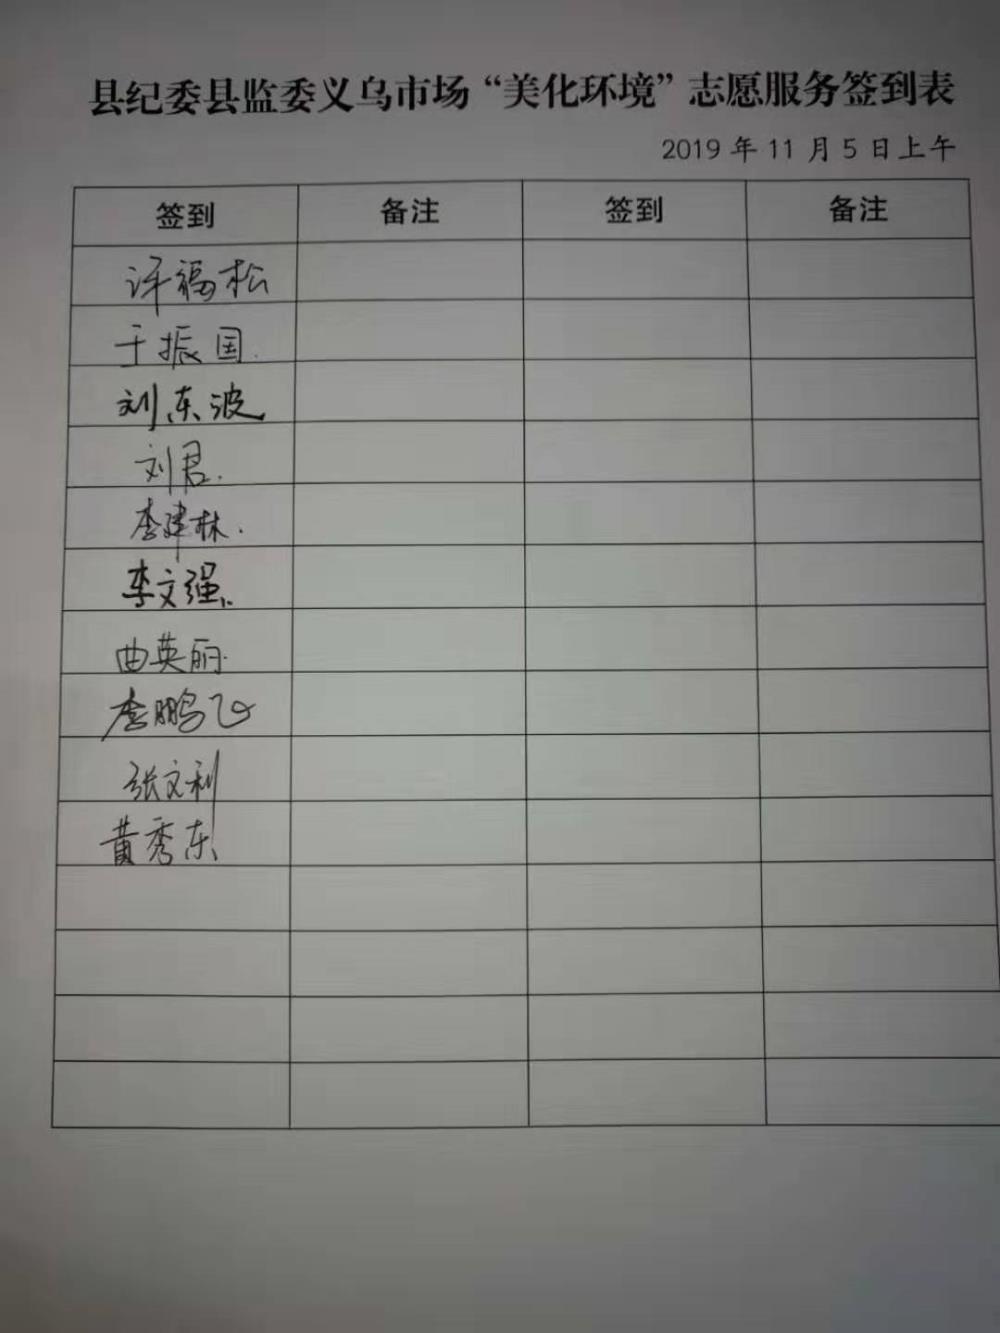 县纪委县监委义乌市场“美化环境”志愿服务签到表
2019 年 11 月 5 日上午
签到 备注 签到 备注
许福松
于振国.
刘东波
刘君.
李建林.
李文强.
曲英丽.
李鹏飞
张文利
黄秀东